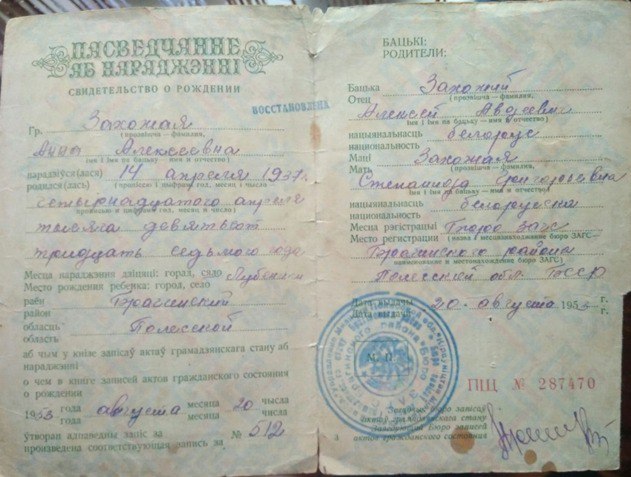 ПАСВЕДЧАННЕ
АБ НАРАДЖЭННІ
СВИДЕТЕЛЬСТВО О РОЖДЕНИИ
ВОССТАНОВЛЕНА
Гр. Захожая
(прозвішча — фамилия,
Анна Алексеевна
імя і імя па бацьку — имя и отчество)
нарадзіўся(лася) 14 апреля 1937.
родился(лась) (пропіссю і цыфрамі год, месяц і чысло
четырнадцатого апреля
прописью и цифрами год, месяц и число)
тысяча девятьсот
тридцать седьмого года
Месца нараджэння дзіцяці: горад, сяло
Место рождения ребенка: город, село
раён Брагинский
район
область Полесской
область
аб чым у кнізе запісаў актаў грамадзянскага стану аб
нараджэнні
о чем в книге записей актов гражданского состояния
о рождении
1953 года августа месяца 20 чысла
года месяца числа
ўтворан адпаведны запіс за № 512
произведена соответствующая запись за
БАЦЬКІ:
РОДИТЕЛИ:
Бацька Захожий
Отец (прозвішча — фамилия,
Алексей
імя і імя па бацьку — имя и отчество)
нацыянальнасць белорус
национальность
Маці Захожая
Мать (прозвішча — фамилия,
Степанида Григорьевна
імя і імя па бацьку — имя и отчество)
нацыянальнасць белорусска
национальность
Месца рэгістрацыі Бюро загс
Место регистрации (назва і месцазнаходжанне бюро ЗАГС—
Брагинского района
наименование и местонахождение бюро ЗАГС)
Полесской обл. БССР
Дата выдачы 20 августа 195 г.
Дата выдачи г.
ПЦ № 287470
Загадчык бюро запісаў
актаў грамадзянскага стану
Заведующий Бюро записей
актов гражданского состояния